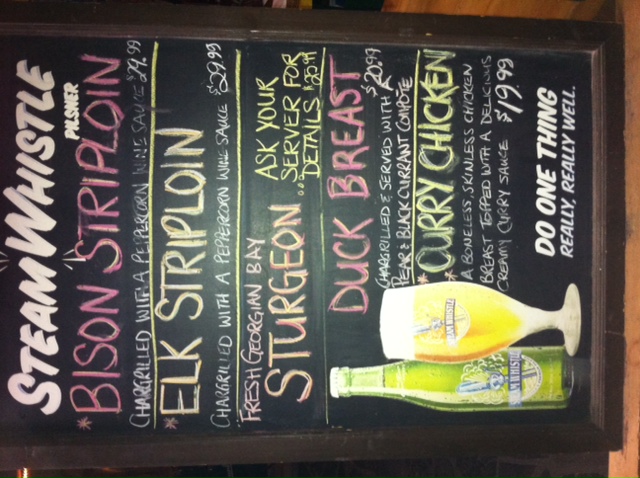 STEAM WHISTLE
PILSNER
* BISON STRIPLOIN
CHARGRILLED WITH A PEPPERCORN WINE SAUCE $29.99
* ELK STRIPLOIN
CHARGRILLED WITH A PEPPERCORN WINE SAUCE $29.99
FRESH GEORGIAN BAY
STURGEON ...
ASK YOUR
SERVER FOR
DETAILS $25.99
DUCK BREAST
CHARGRILLED & SERVED WITH A $20.99
PEAR & BLACK CURRANT COMPOTE
* CURRY CHICKEN
* A BONELESS, SKINLESS CHICKEN
BREAST TOPPED WITH A DELICIOUS
CREAMY CURRY SAUCE $19.99
DO ONE THING
REALLY, REALLY WELL.
STEAM WHISTLE
STEAM WHISTLE